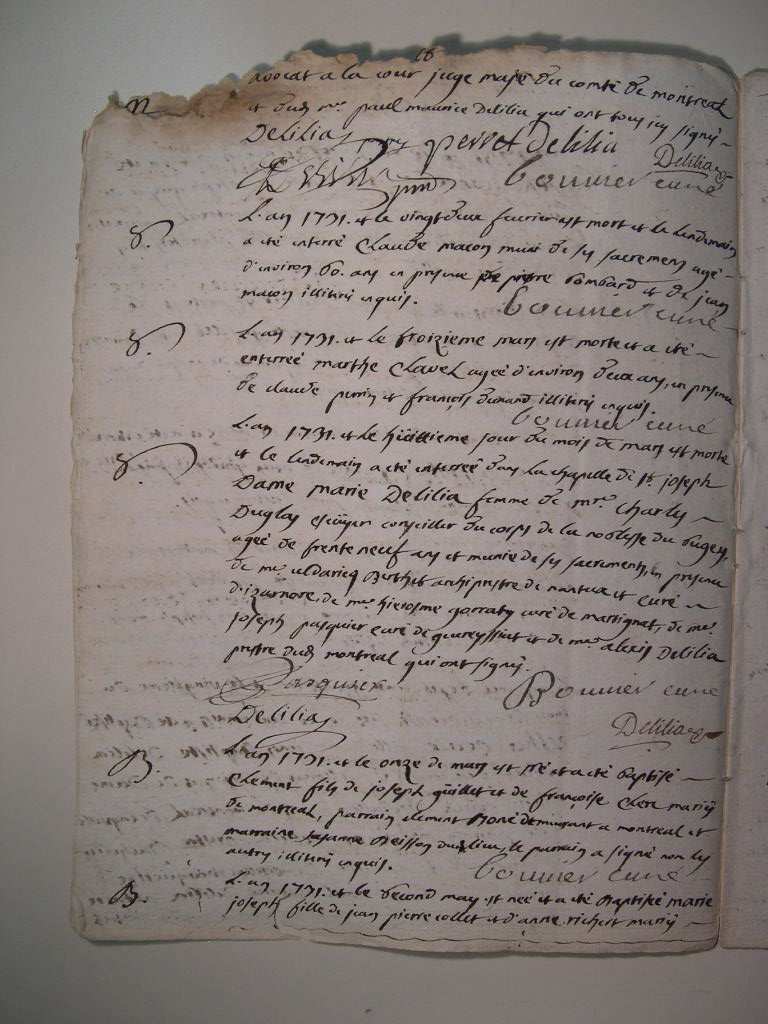 18
avocat a la cour juge maje du comté de montreal
et dud. mre. paul maurice Delilia qui ont tous icy signé
Delilia perret Delilia
Delilia
bonnier curé
L'an 1731. et le vingt deux feuvrier est mort et le lendemain
S.
a été enterré Claude macon muni de ses sacremens agé
d'environ 60. ans en presence de bombard et de jean
macon illiterés enquis.
bonnier curé
S.
L'an 1731. et le troizieme mars est morte et a eté
enterreé marthe Clavel ageé d'environ deux ans, en presence
de claude perrin et françois durand illiterés enquis.
bonnier curé
L'an 1731. et le huittieme jour du mois de mars est morte
S.
et le lendemain a eté enterreé dans la chapelle de st. joseph
Dame marie Delilia femme de mre. Charles
Duglas escüyer conseiller du corps de la noblesse du bugey,
ageé de trente neuf ans et munie de ses sacremens, en presence
de mre. uldaric Berthet archiprestre de nantua et curé
d'izarnore, de mre. hierosme gorraty curé de martignat, de mre.
joseph pasquier curé de geureyssiat et de mre. alexis Delilia
prestre dud. montreal qui ont signé.
Pasquier
Bonnier curé
Delilia
Delilia
B.
L'an 1731. et le onze de mars est né et a eté baptisé
Clement fils de joseph guillet et de françoise Clerc mariés
de montreal, parrain clement demeurant a montreal et
marraine susanne dud. lieu, le parrain a signé non les
autres illiterés enquis.
bonnier curé
B.
L'an 1731. et le second may est neé et a eté Baptiseé marie
joseph fille de jean pierre collet et d'anne richert mariés